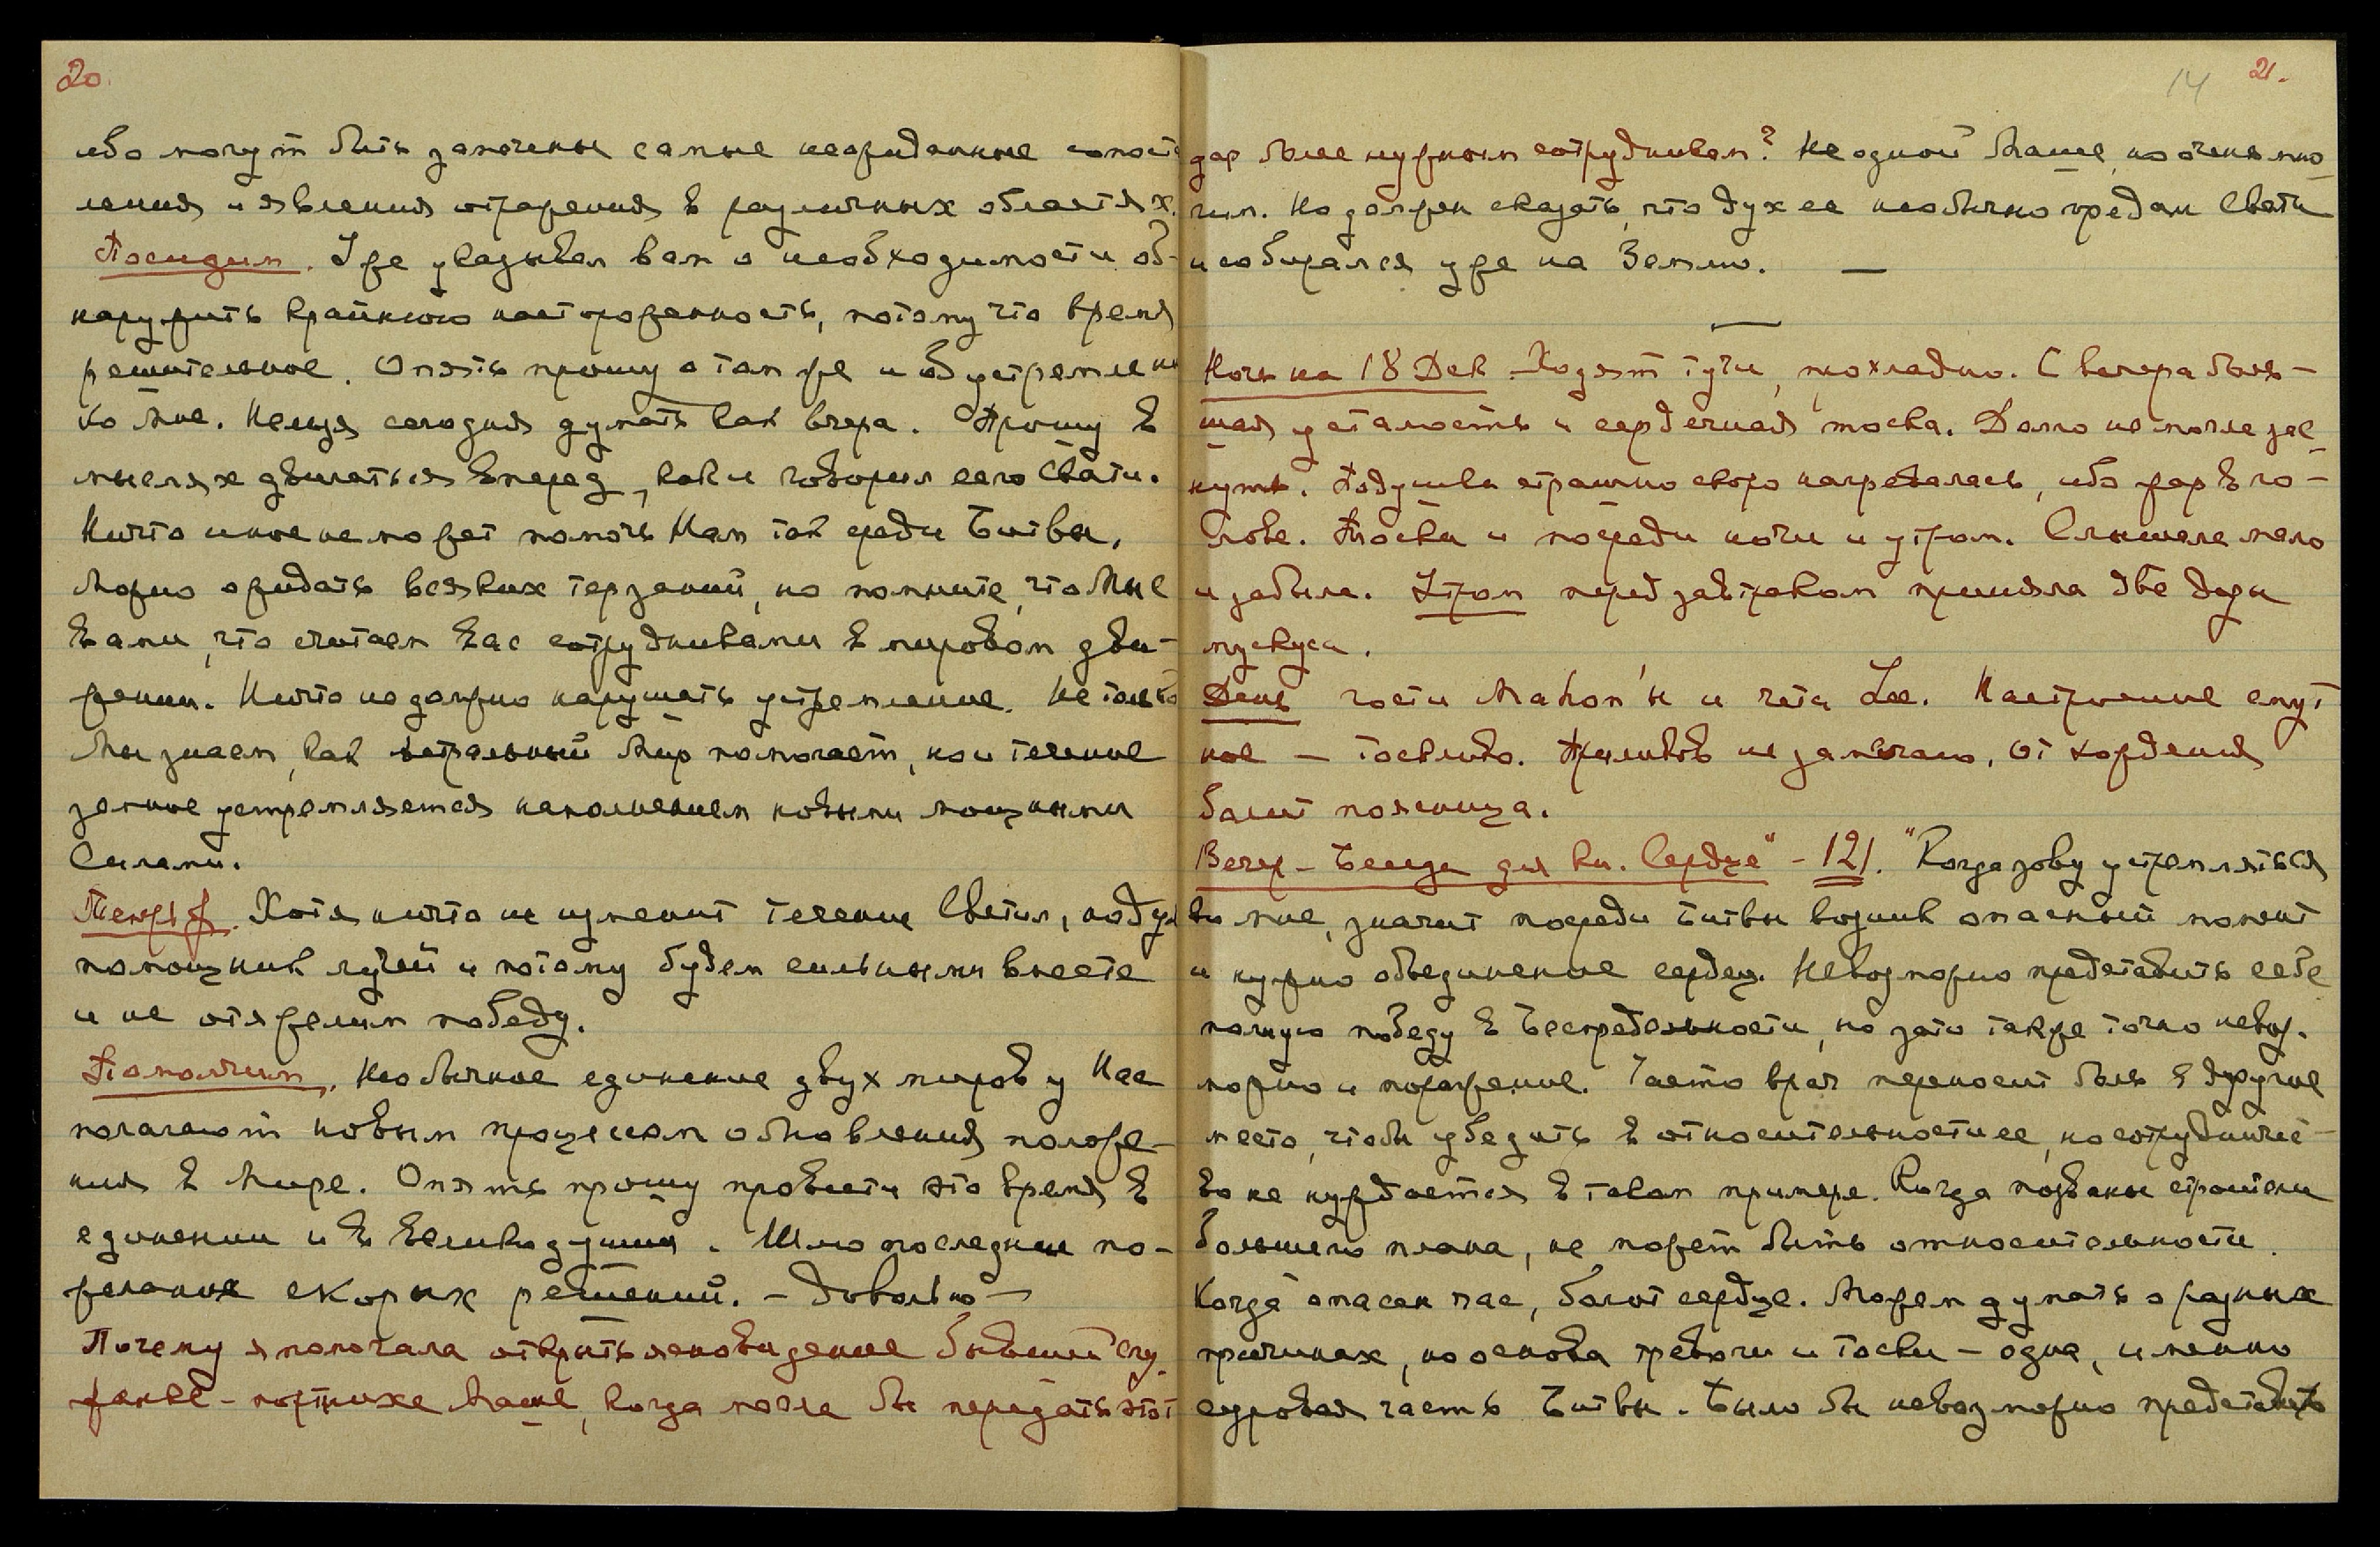 20.
ибо могут быть замечены самые неожиданные сопостав
ления и явления отражения в различных областях.
Посидим. Уже указывал вам о необходимости об-
наружить крайнюю настороженность, потому что время
решительное. Опять прошу о том же и об устремлении
ко Мне. Нельзя сегодня думать как вчера. Прошу в
мыслях двигаться вперед, как и говорил вам Свати.
Ничто иное не может помочь Нам так среди Битвы.
Можно ожидать всяких терзаний, но помните, что Мы с
вами, что считаем вас сотрудниками в мировом дви-
жении. Ничто не должно нарушать устремление. Не только
Мы знаем, как астральный Мир помогает, но и течение
земное устремляется наполнением новыми мощными
Силами.
Теперь Ж. Хотя ничто не изменит течение Светил, но дух
помощник лучей и потому будем сильными вместе
и не отяжелим победу.
Помолчим. Необычное единение двух миров у Нас
помогают новым процессам обновления положе-
ния в Мире. Опять прошу провести это время в
единении и в великодушии. Шлю последним по-
желание скорых решений. – Довольно –
Почему я помогала открыть ясновидение бывшей слу-
жанке – портнихе Маше, когда могла бы передать этот
14 21.
дар более нужным сотрудникам? Не одной Маше, но очень мно-
гим. Но должен сказать, что дух ее необычно предан Свати
и собирался уже на Землю. —
—
Ночь на 18 Дек. Ходят тучи, прохладно. С вечера боль-
шая усталость и сердечная тоска. Долго не могла зас-
нуть. Подушки страшно скоро нагревались, ибо жар в го-
лове. Тоска и посреди ночи и утром. Слышала мало
и забыла. Утром перед завтраком приняла две дозы
мускуса.
День гости Mahon'ы и чета Lee. Настроение смут-
ное – тоскливо. Приливов не замечаю, от хождения
болит поясница.
Вечер – Беседа для кн. "Сердце" – 121. "Когда зову устремляться
ко мне, значит посреди Битвы возник опасный момент
и нужно объединение сердец. Невозможно представить себе
полную победу в Беспредельности, но зато также точно невоз-
можно и поражение. Часто врач переносит боль в другое
место, чтобы убедить в относительности ее, но сотрудничес-
во не нуждается в таком примере. Когда позваны строители
большего плана, не может быть относительности.
Когда опасен час, болит сердце. Можем думать о разных
причинах, но основа тревоги и тоски – одна, именно
суровая часть Битвы. Было бы невозможно представить